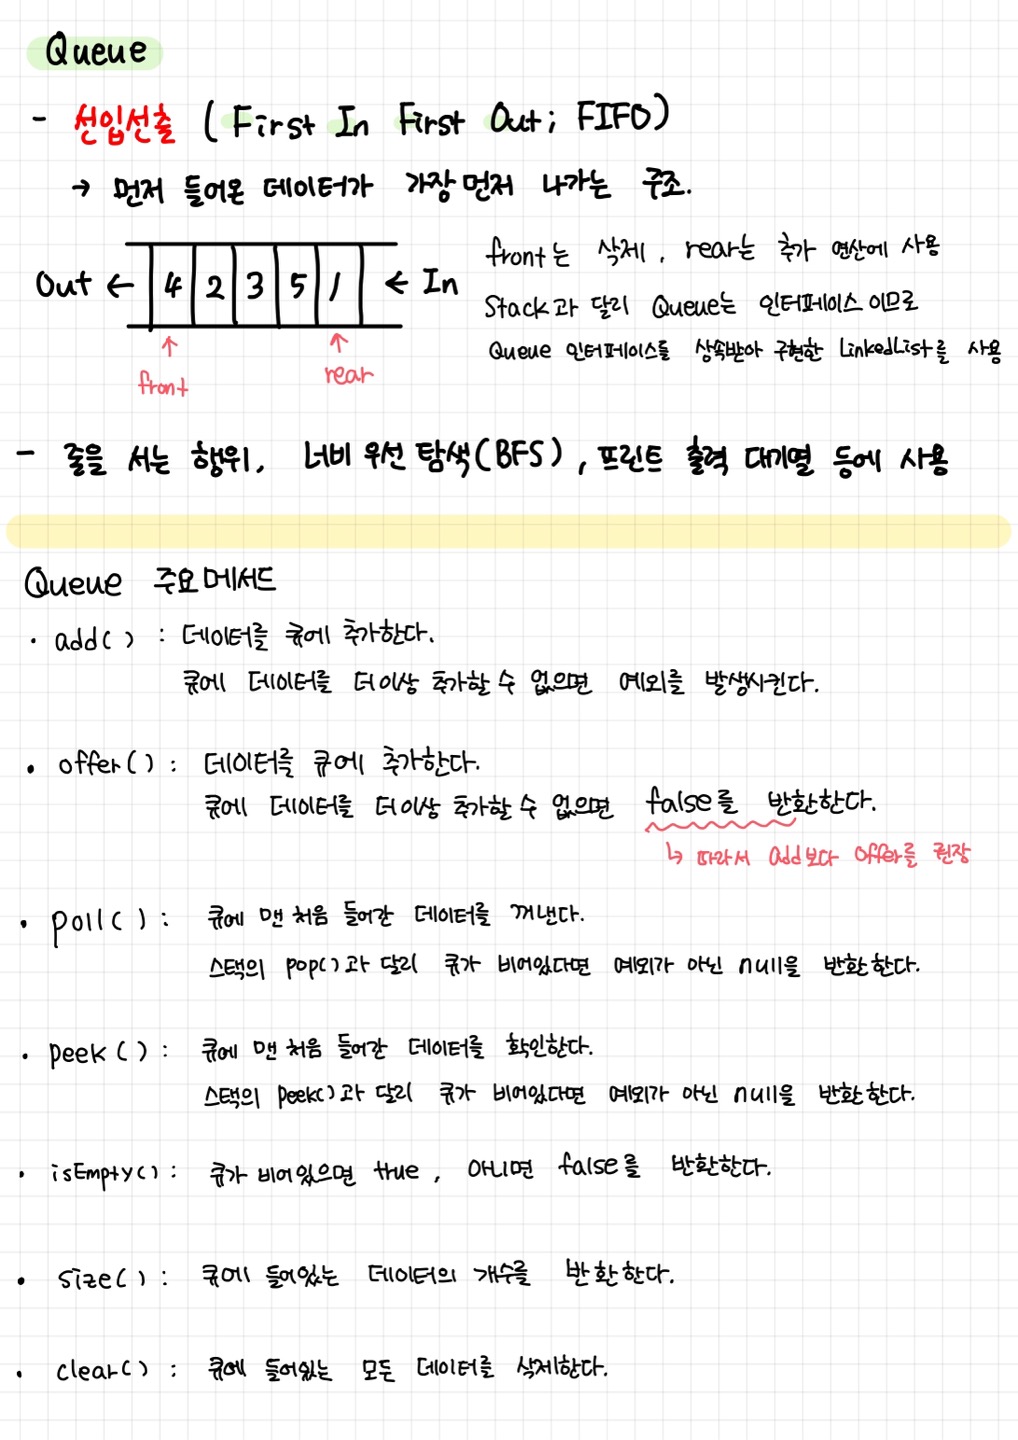 Queue
- 선입선출 (First In First Out; FIFO)
→ 먼저 들어온 데이터가 가장 먼저 나가는 구조.
Out ← 4 2 3 5 1 ← In
front
rear
front는 삭제, rear는 추가 연산에 사용
Stack과 달리 Queue는 인터페이스 이므로
Queue 인터페이스를 상속받아 구현한 LinkedList를 사용
- 줄을 서는 행위, 너비 우선 탐색(BFS), 프린트 출력 대기열 등에 사용
Queue 주요 메서드
· add() : 데이터를 큐에 추가한다.
큐에 데이터를 더 이상 추가할 수 없으면 예외를 발생시킨다.
· offer() : 데이터를 큐에 추가한다.
큐에 데이터를 더 이상 추가할 수 없으면 false를 반환한다.
↳ 따라서 add보다 offer를 권장
· poll() : 큐에 맨 처음 들어간 데이터를 꺼낸다.
스택의 pop()과 달리 큐가 비어있다면 예외가 아닌 null을 반환한다.
· peek() : 큐에 맨 처음 들어간 데이터를 확인한다.
스택의 peek()과 달리 큐가 비어있다면 예외가 아닌 null을 반환한다.
· isEmpty() : 큐가 비어있으면 true, 아니면 false를 반환한다.
· size() : 큐에 들어있는 데이터의 개수를 반환한다.
· clear() : 큐에 들어있는 모든 데이터를 삭제한다.